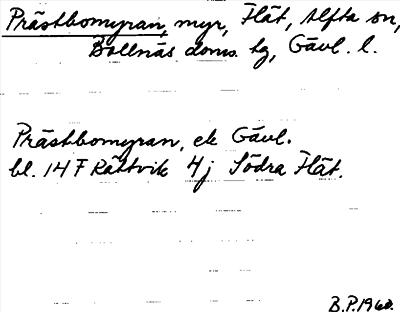 Prästbomyran, myr, Flät, Alfta sn,
Bollnäs doms. tg, Gävl. l.
Prästbomyran, ek Gävl.
bl. 14 F Rättvik 4j Södra Flät.
B.P. 1960.